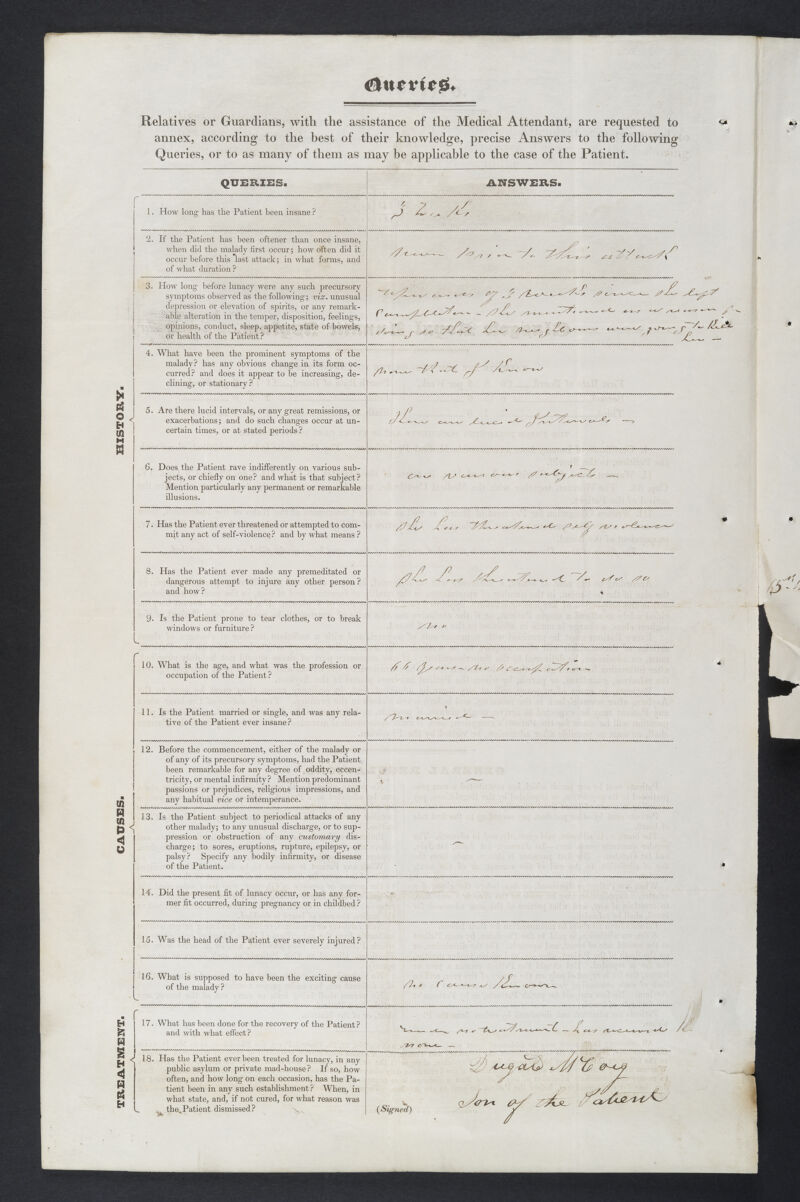 Queries.
Relatives or Guardians, with the assistance of the Medical Attendant, are requested to
annex, according to the best of their knowledge, precise Answers to the following
Queries, or to as many of them as may be applicable to the case of the Patient.
QUERIES.
ANSWERS.
HISTORY.
1. How long has the Patient been insane?
3 Weeks
2. If the Patient has been oftener than once insane,
when did the malady first occur; how often did it
occur before this last attack; in what forms, and
of what duration?
never prior to this attack
3. How long before lunacy were any such precursory
symptoms observed as the following; viz. unusual
depression or elevation of spirits, or any remark-
able alteration in the temper, disposition, feelings,
opinions, conduct, sleep, appetite, state of bowels,
or health of the Patient?
upwards of 3 weeks since she left
Campbleton - she mentioned as a reason for
doing so that her neighbours were going to kill
her -
4. What have been the prominent symptoms of the
malady? has any obvious change in its form oc-
curred? and does it appear to be increasing, de-
clining, or stationary?
none that I know
5. Are there lucid intervals, or any great remissions, or
exacerbations; and do such changes occur at un-
certain times, or at stated periods?
There are lucid Intervals -
6. Does the Patient rave indifferently on various sub-
jects, or chiefly on one? and what is that subject?
Mention particularly any permanent or remarkable
illusions.
on various subjects -
7. Has the Patient ever threatened or attempted to com-
mit any act of self-violence? and by what means?
She has threatened self violence
8. Has the Patient ever made any premeditated or
dangerous attempt to injure any other person?
and how?
She has threatened to do so
9. Is the Patient prone to tear clothes, or to break
windows or furniture?
no
CAUSES.
10. What is the age, and what was the profession or
occupation of the Patient?
66 years no occupation
11. Is the Patient married or single, and was any rela-
tive of the Patient ever insane?
married -
12. Before the commencement, either of the malady or
of any of its precursory symptoms, had the Patient
been remarkable for any degree of oddity, eccen-
tricity, or mental infirmity? Mention predominant
passions or prejudices, religious impressions, and
any habitual vice or intemperance.
13. Is the Patient subject to periodical attacks of any
other malady; to any unusual discharge, or to sup-
pression or obstruction of any customary dis-
charge; to sores, eruptions, rupture, epilepsy, or
palsy? Specify any bodily infirmity, or disease
of the Patient.
14. Did the present fit of lunacy occur, or has any for-
mer fit occurred, during pregnancy or in childbed?
15. Was the head of the Patient ever severely injured?
16. What is supposed to have been the exciting cause
of the malady?
no cause known
TREATMENT.
17. What has been done for the recovery of the Patient?
and with what effect?
under no treatment - has received
none -
18. Has the Patient ever been treated for lunacy, in any
public asylum or private mad-house? If so, how
often, and how long on each occasion, has the Pa-
tient been in any such establishment? When, in
what state, and, if not cured, for what reason was
the Patient dismissed?
Dugald McCoig
(Signed) Son of the Patient